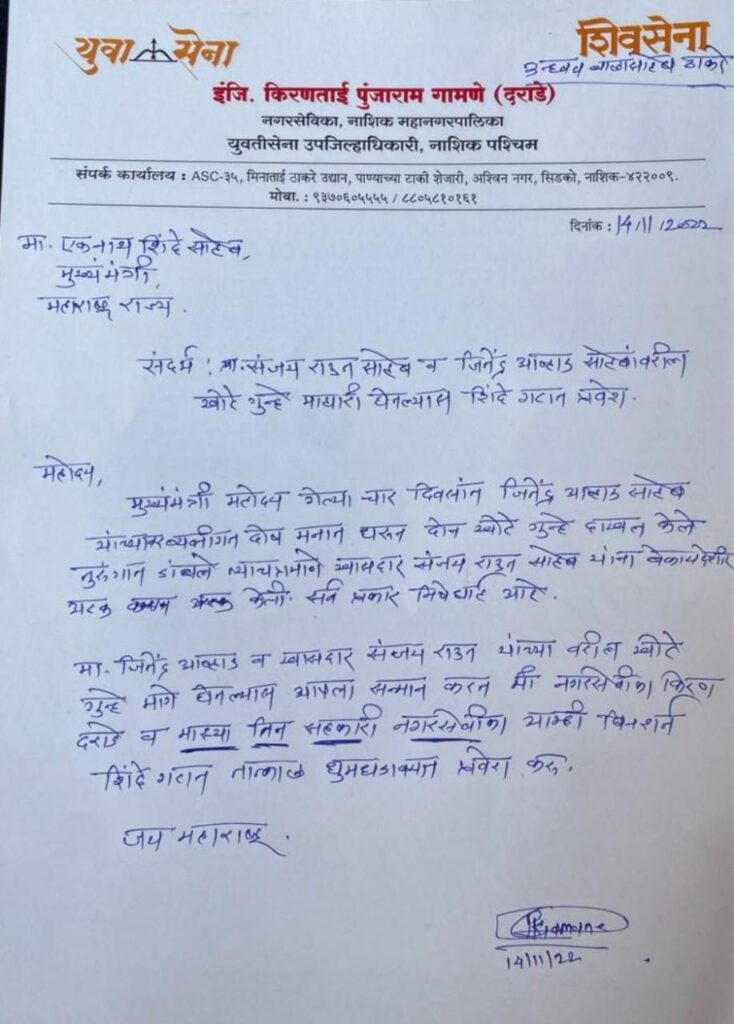 युवा सेना
शिवसेना
उध्दव बाळासाहेब ठाकरे
इंजि. किरणताई पुंजाराम गामणे (दराडे)
नगरसेविका, नाशिक महानगरपालिका
युवतीसेना उपजिल्हाधिकारी, नाशिक पश्चिम
संपर्क कार्यालय : ASC-३५, मिनाताई ठाकरे उद्यान, पाण्याच्या टाकी शेजारी, अश्विन नगर, सिडको, नाशिक-४२२००९.
मोबा. : ९३७०६०५५५५ / ८८०५८१०१६१
दिनांक : 14/11/2022
मा. एकनाथ शिंदे साहेब,
मुख्यमंत्री,
महाराष्ट्र राज्य.
संदर्भ : मा. संजय राऊत साहेब व जितेंद्र आव्हाड साहेबांवरील
खोटे गुन्हे माघारी घेतल्यास शिंदे गटात प्रवेश.
महोदय,
मुख्यमंत्री महोदय गेल्या चार दिवसांत जितेंद्र आव्हाड साहेब
यांच्यावर व्यक्तीगत दोष मनात धरून दोन खोटे गुन्हे दाखल केले
तुरुंगात डांबले त्याचप्रमाणे खासदार संजय राऊत साहेब यांना बेकायदेशीर
अटक केली. सर्व प्रकार निषेधार्ह आहे.
मा. जितेंद्र आव्हाड व खासदार संजय राऊत यांच्या वरील खोटे
गुन्हे मागे घेतल्यास आपला सन्मान करत मी नगरसेवीका किरण
दराडे व माझ्या तिन सहकारी नगरसेवीका आम्ही बिनशर्त
शिंदे गटात तात्काळ धुमधडाक्यात प्रवेश करू.
जय महाराष्ट्र.
Gamane
14/11/22